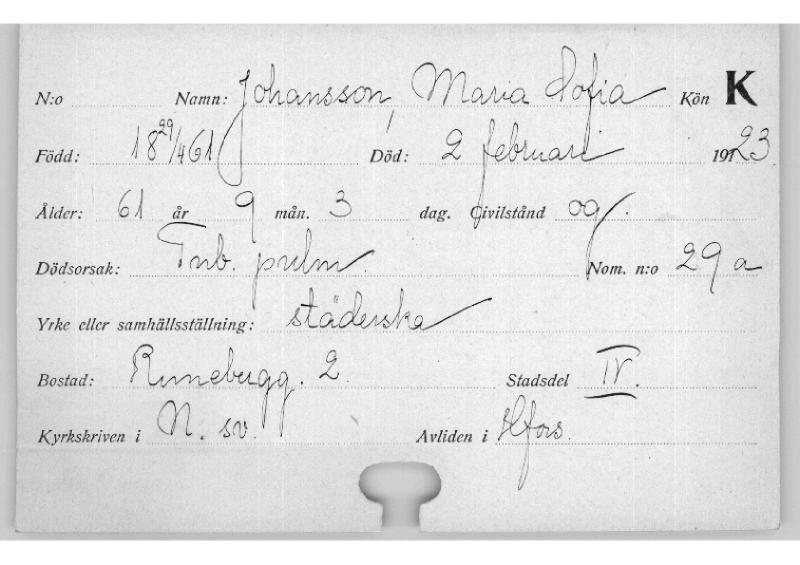 N:o Namn: Johansson, Maria Sofia Kön K
Född: 18 29/4 61 Död: 2 februari 1923
Ålder: 61 år 9 mån. 3 dag. Civilstånd og.
Dödsorsak: Tub. pulm. Nom. n:o 29 a
Yrke eller samhällsställning: städerska
Bostad: Runebergg. 2. Stadsdel IV.
Kyrkskriven i N. sv. Avliden i Hfors.